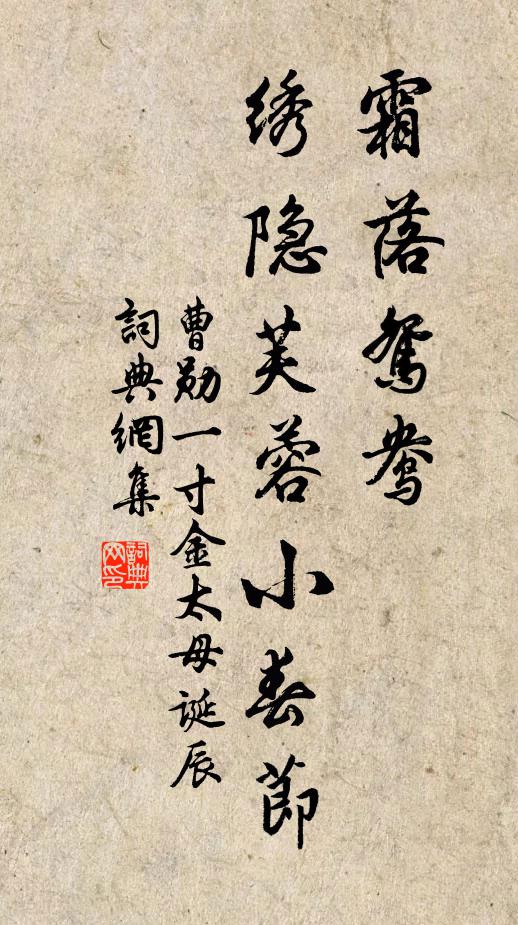 霜落鸳鸯
绣隐芙蓉小春节
曹勋一寸金太母诞辰
词典网集
词典网印